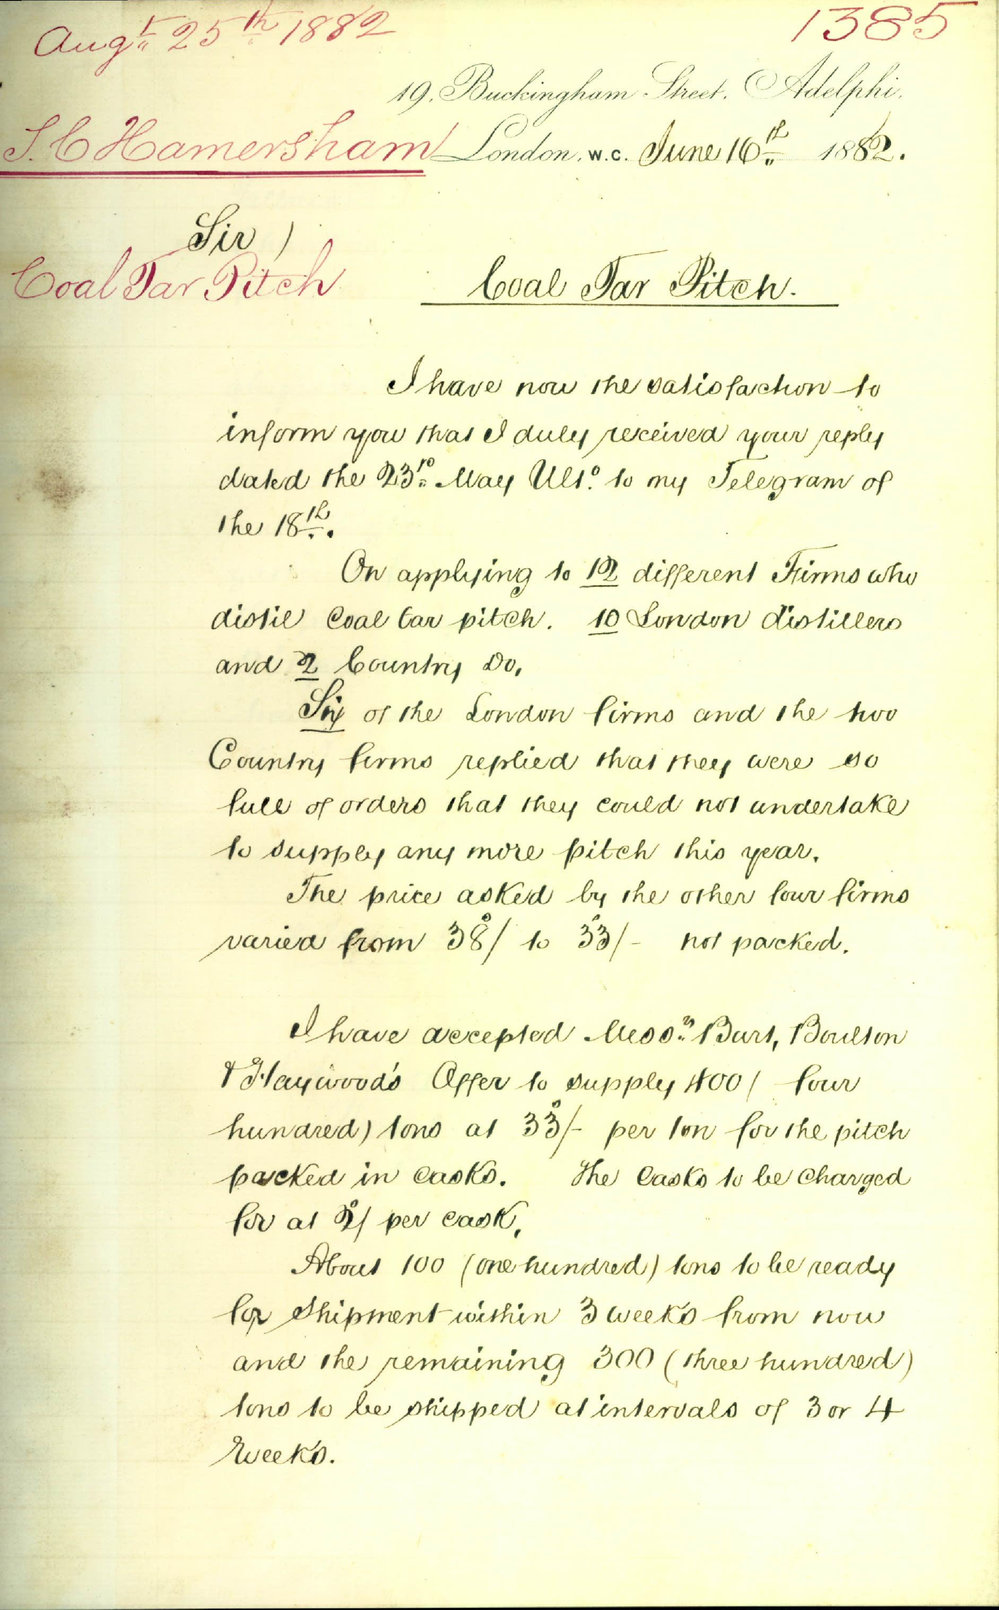 Augt. 25th 1882
1385
19, Buckingham Street, Adelphi,
S. C Hamersham
London, W.C. June 16th 1882.
Sir)
Coal Tar Pitch
Coal Tar Pitch.
I have now the satisfaction to
inform you that I duly received your reply
dated the 23rd May Ulto. to my Telegram of
the 18th.
On applying to 12 different Firms who
distil Coal tar pitch. 10 London distillers
and 2 Country Do,
Six of the London firms and the two
Country firms replied that they were so
full of orders that they could not undertake
to supply any more pitch this year.
The price asked by the other four firms
varied from 38s/ to 33s/- not packed.
I have accepted Messrs. Burt, Boulton
& Haywood's Offer to supply 400/ four
hundred) tons at 33s/- per ton for the pitch
packed in casks. The Casks to be Charged
for at 2s/ per cask,
About 100 (one hundred) tons to be ready
for Shipment within 3 weeks from now
and the remaining 300 (three hundred)
tons to be shipped at intervals of 3 or 4
weeks.